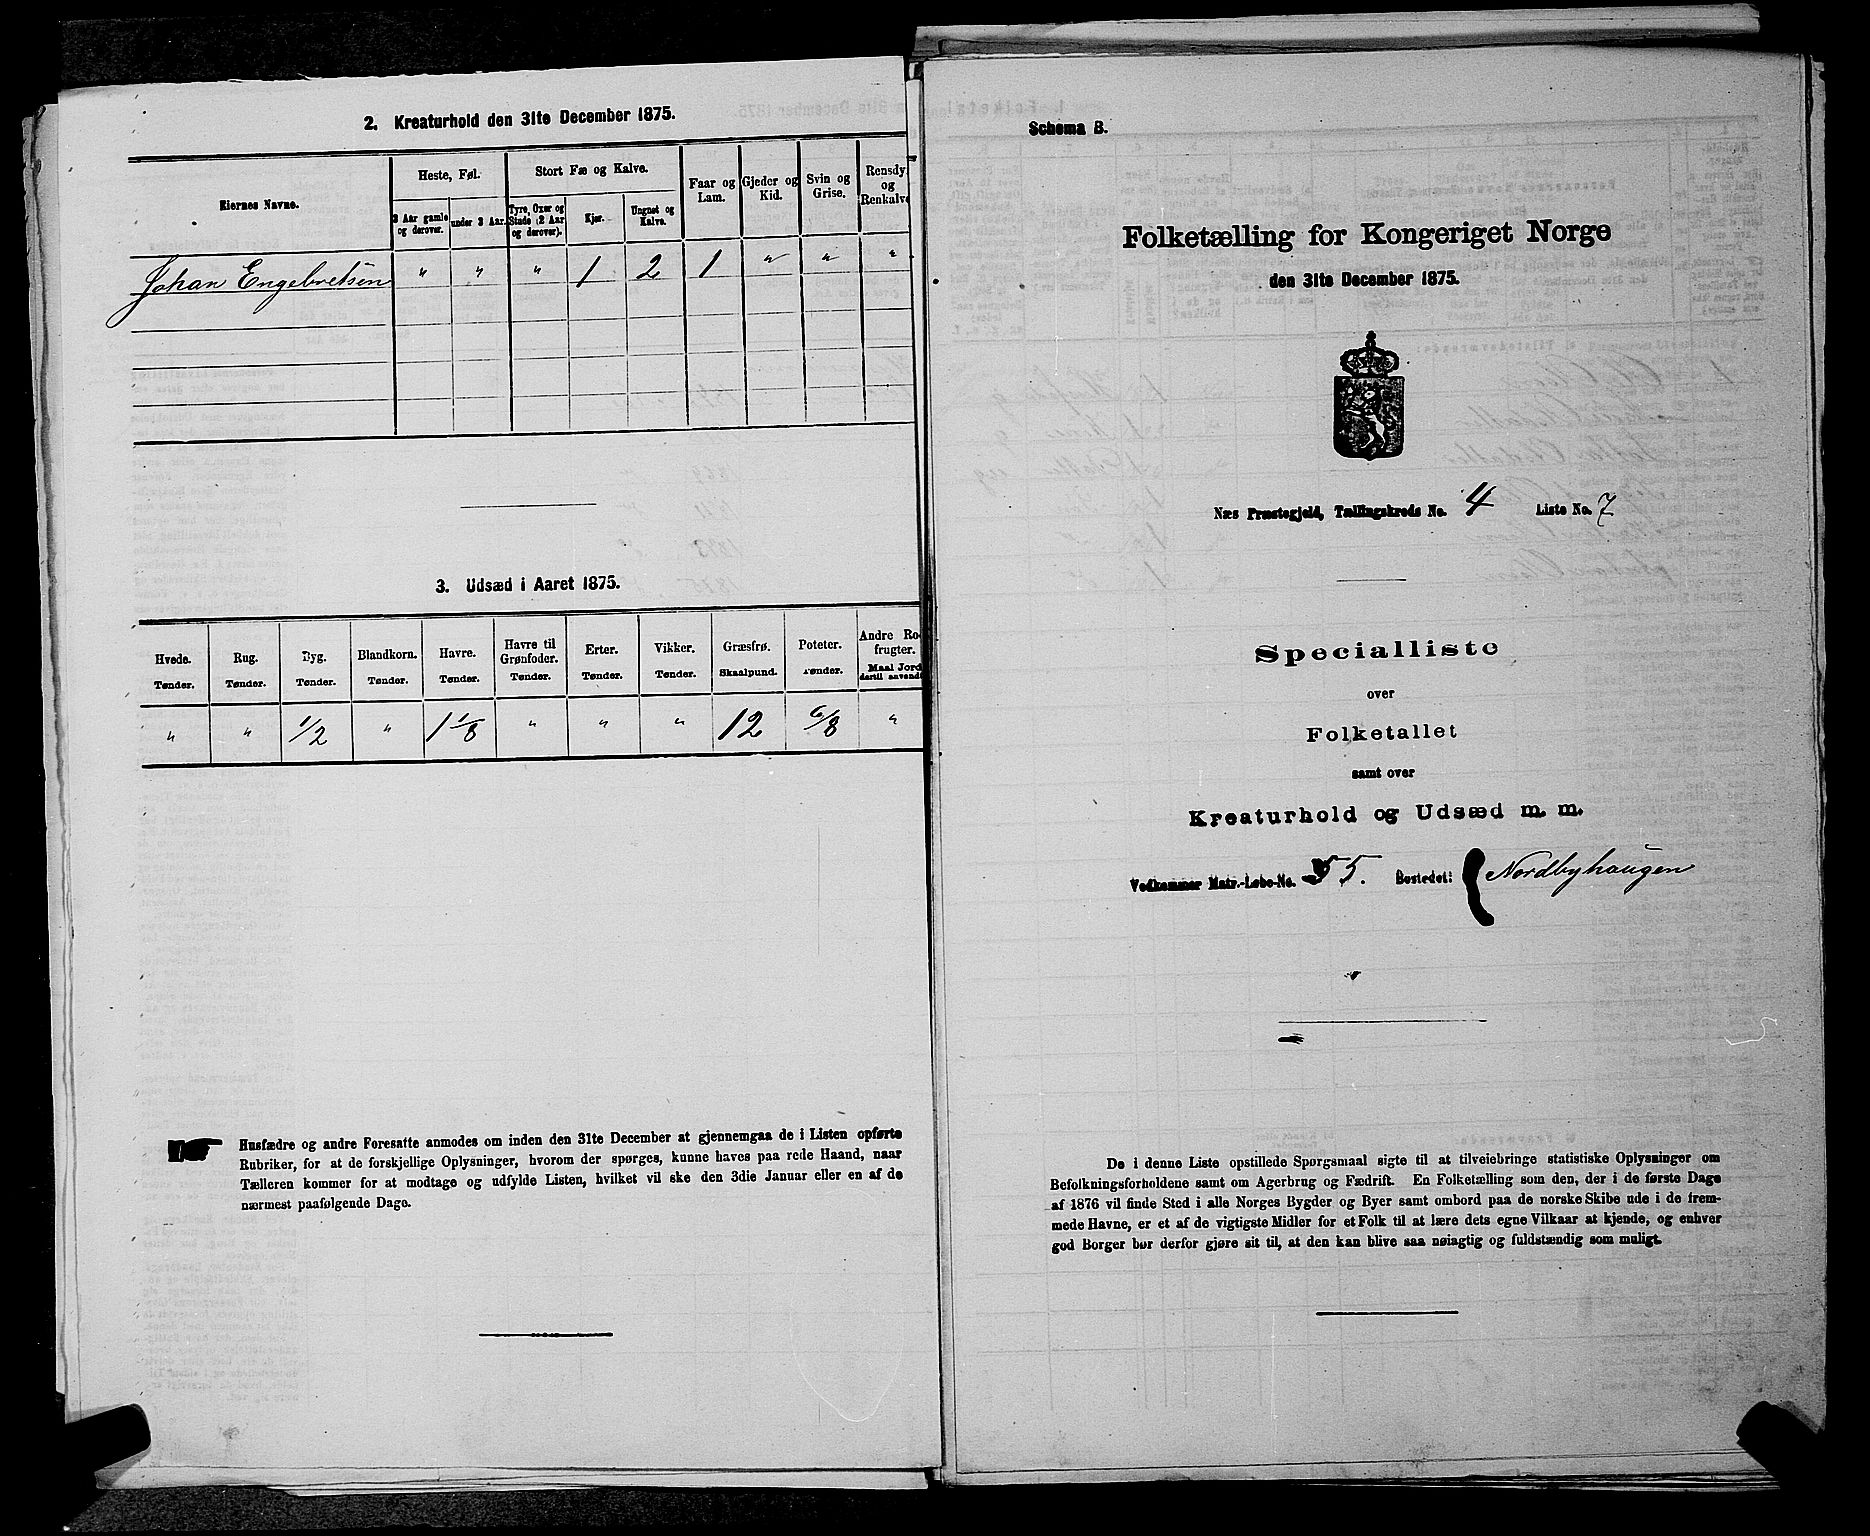 2. Kreaturhold den 31te December 1875.
Eiernes Navne.
Heste, Føl.
Stort Fæ og Kalve.
Faar og Lam.
Gjeder og Kid.
Svin og Grise.
Rensdy. og Renkalve
3 Aar gamle og derover.
under 3 Aar.
Tyre, Oxer og Stude (2 Aar og derover).
Kjør.
Ungnet og Kalve.
Johan Engebretsen " " " 1 2 1 " " "
3. Udsæd i Aaret 1875.
Hvede. Rug. Byg. Blandkorn. Havre. Havre til Grønfoder. Erter. Vikker. Græsfrø. Poteter. Andre Ro- frugter.
Tønder. Tønder. Tønder. Tønder. Tønder. Tønder. Tønder. Tønder. Skaalpund. Tønder. Maal Jord dertil anvendt
" " 1/2 " 1 1/8 " " " 12 6/8 "
Husfædre og andre Foresatte anmodes om inden den 31te December at gjennemgaa de i Listen opførte
Rubriker, for at de forskjellige Oplysninger, hvorom der spørges, kunne haves paa rede Haand, naar
Tælleren kommer for at modtage og udfylde Listen, hvilket vil ske den 3die Januar eller en af de
nærmest paafølgende Dage.
Schema B.
Folketælling for Kongeriget Norge
den 31te December 1875.
Næs Præstegjeld, Tællingskreds No. 4 Liste No. 7
Specialliste
over
Folketallet
samt over
Kreaturhold og Udsæd m. m.
Vedkommer Matr.-Løbe-No. 55. Bostedet: Nordbyhaugen
De i denne Liste opstillede Spørgsmaal sigte til at tilveiebringe statistiske Oplysninger om
Befolkningsforholdene samt om Agerbrug og Fædrift. En Folketælling som den, der i de første Dage
af 1876 vil finde Sted i alle Norges Bygder og Byer samt ombord paa de norske Skibe ude i de frem-
mede Havne, er et af de vigtigste Midler for et Folk til at lære dets egne Vilkaar at kjende, og enhver
god Borger bør derfor gjøre sit til, at den kan blive saa nøiagtig og fuldstændig som muligt.